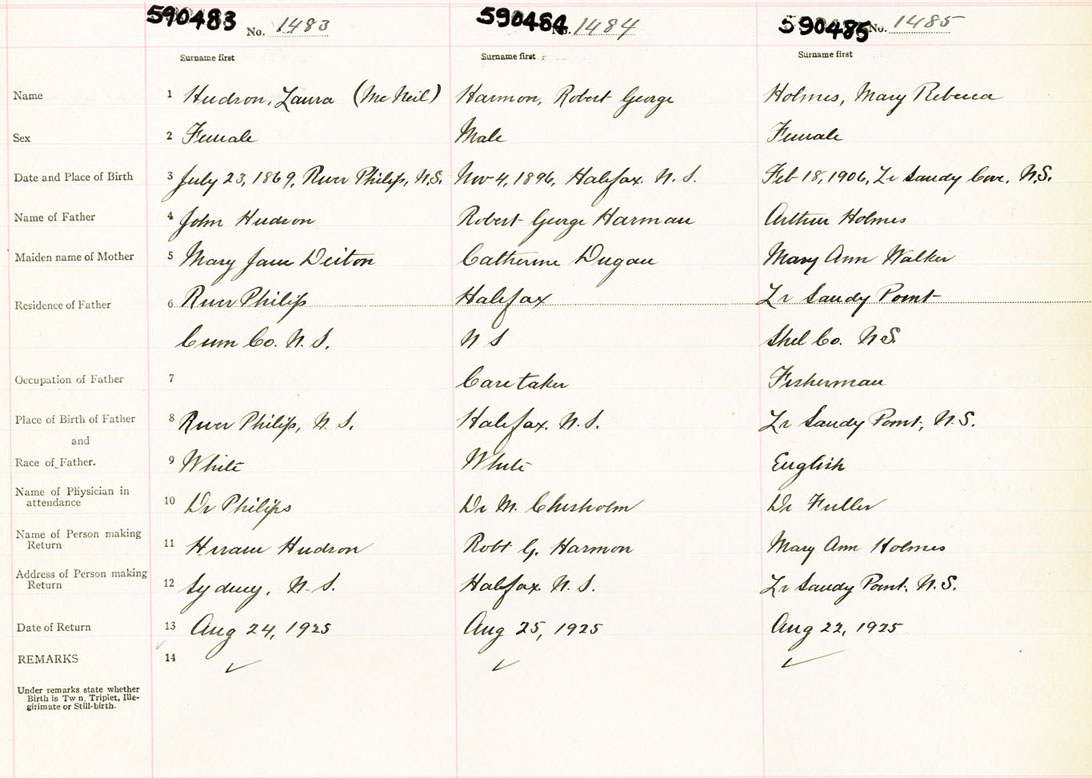 590483 No. 1483 590484 No. 1484 590485 No. 1485
Surname first Surname first Surname first
Name 1 Hudson, Laura (McNeil) Harmon, Robert George Holmes, Mary Rebecca
Sex 2 Female Male Female
Date and Place of Birth 3 July 23, 1869, River Philip, N.S. Nov 4, 1896, Halifax. N.S. Feb 18, 1906, Lr Sandy Cove, N.S.
Name of Father 4 John Hudson Robert George Harman Arthur Holmes
Maiden name of Mother 5 Mary Jane Mary Ann Walker
Catherine Dugan
Residence of Father 6 River Philip Halifax Lr Sandy Point
Cum Co. N.S. N S Shel Co. N.S.
Occupation of Father 7 Caretaker Fisherman
Place of Birth of Father 8 River Philip, N.S. Halifax. N.S. Lr Sandy Point, N.S.
and
Race of Father. 9 White White English
Name of Physician in
attendance 10 Dr Philips Dr M. Chisholm Dr Fuller
Name of Person making
Return 11 Hiram Hudson Robt G. Harmon Mary Ann Holmes
Address of Person making
Return 12 Sydney, N.S. Halifax N.S. Lr Sandy Point. N.S.
Date of Return 13 Aug 24, 1925 Aug 25, 1925 Aug 22, 1925
REMARKS 14
Under remarks state whether
Birth is Tw n, Triplet, Ille-
gitimate or Still-birth.